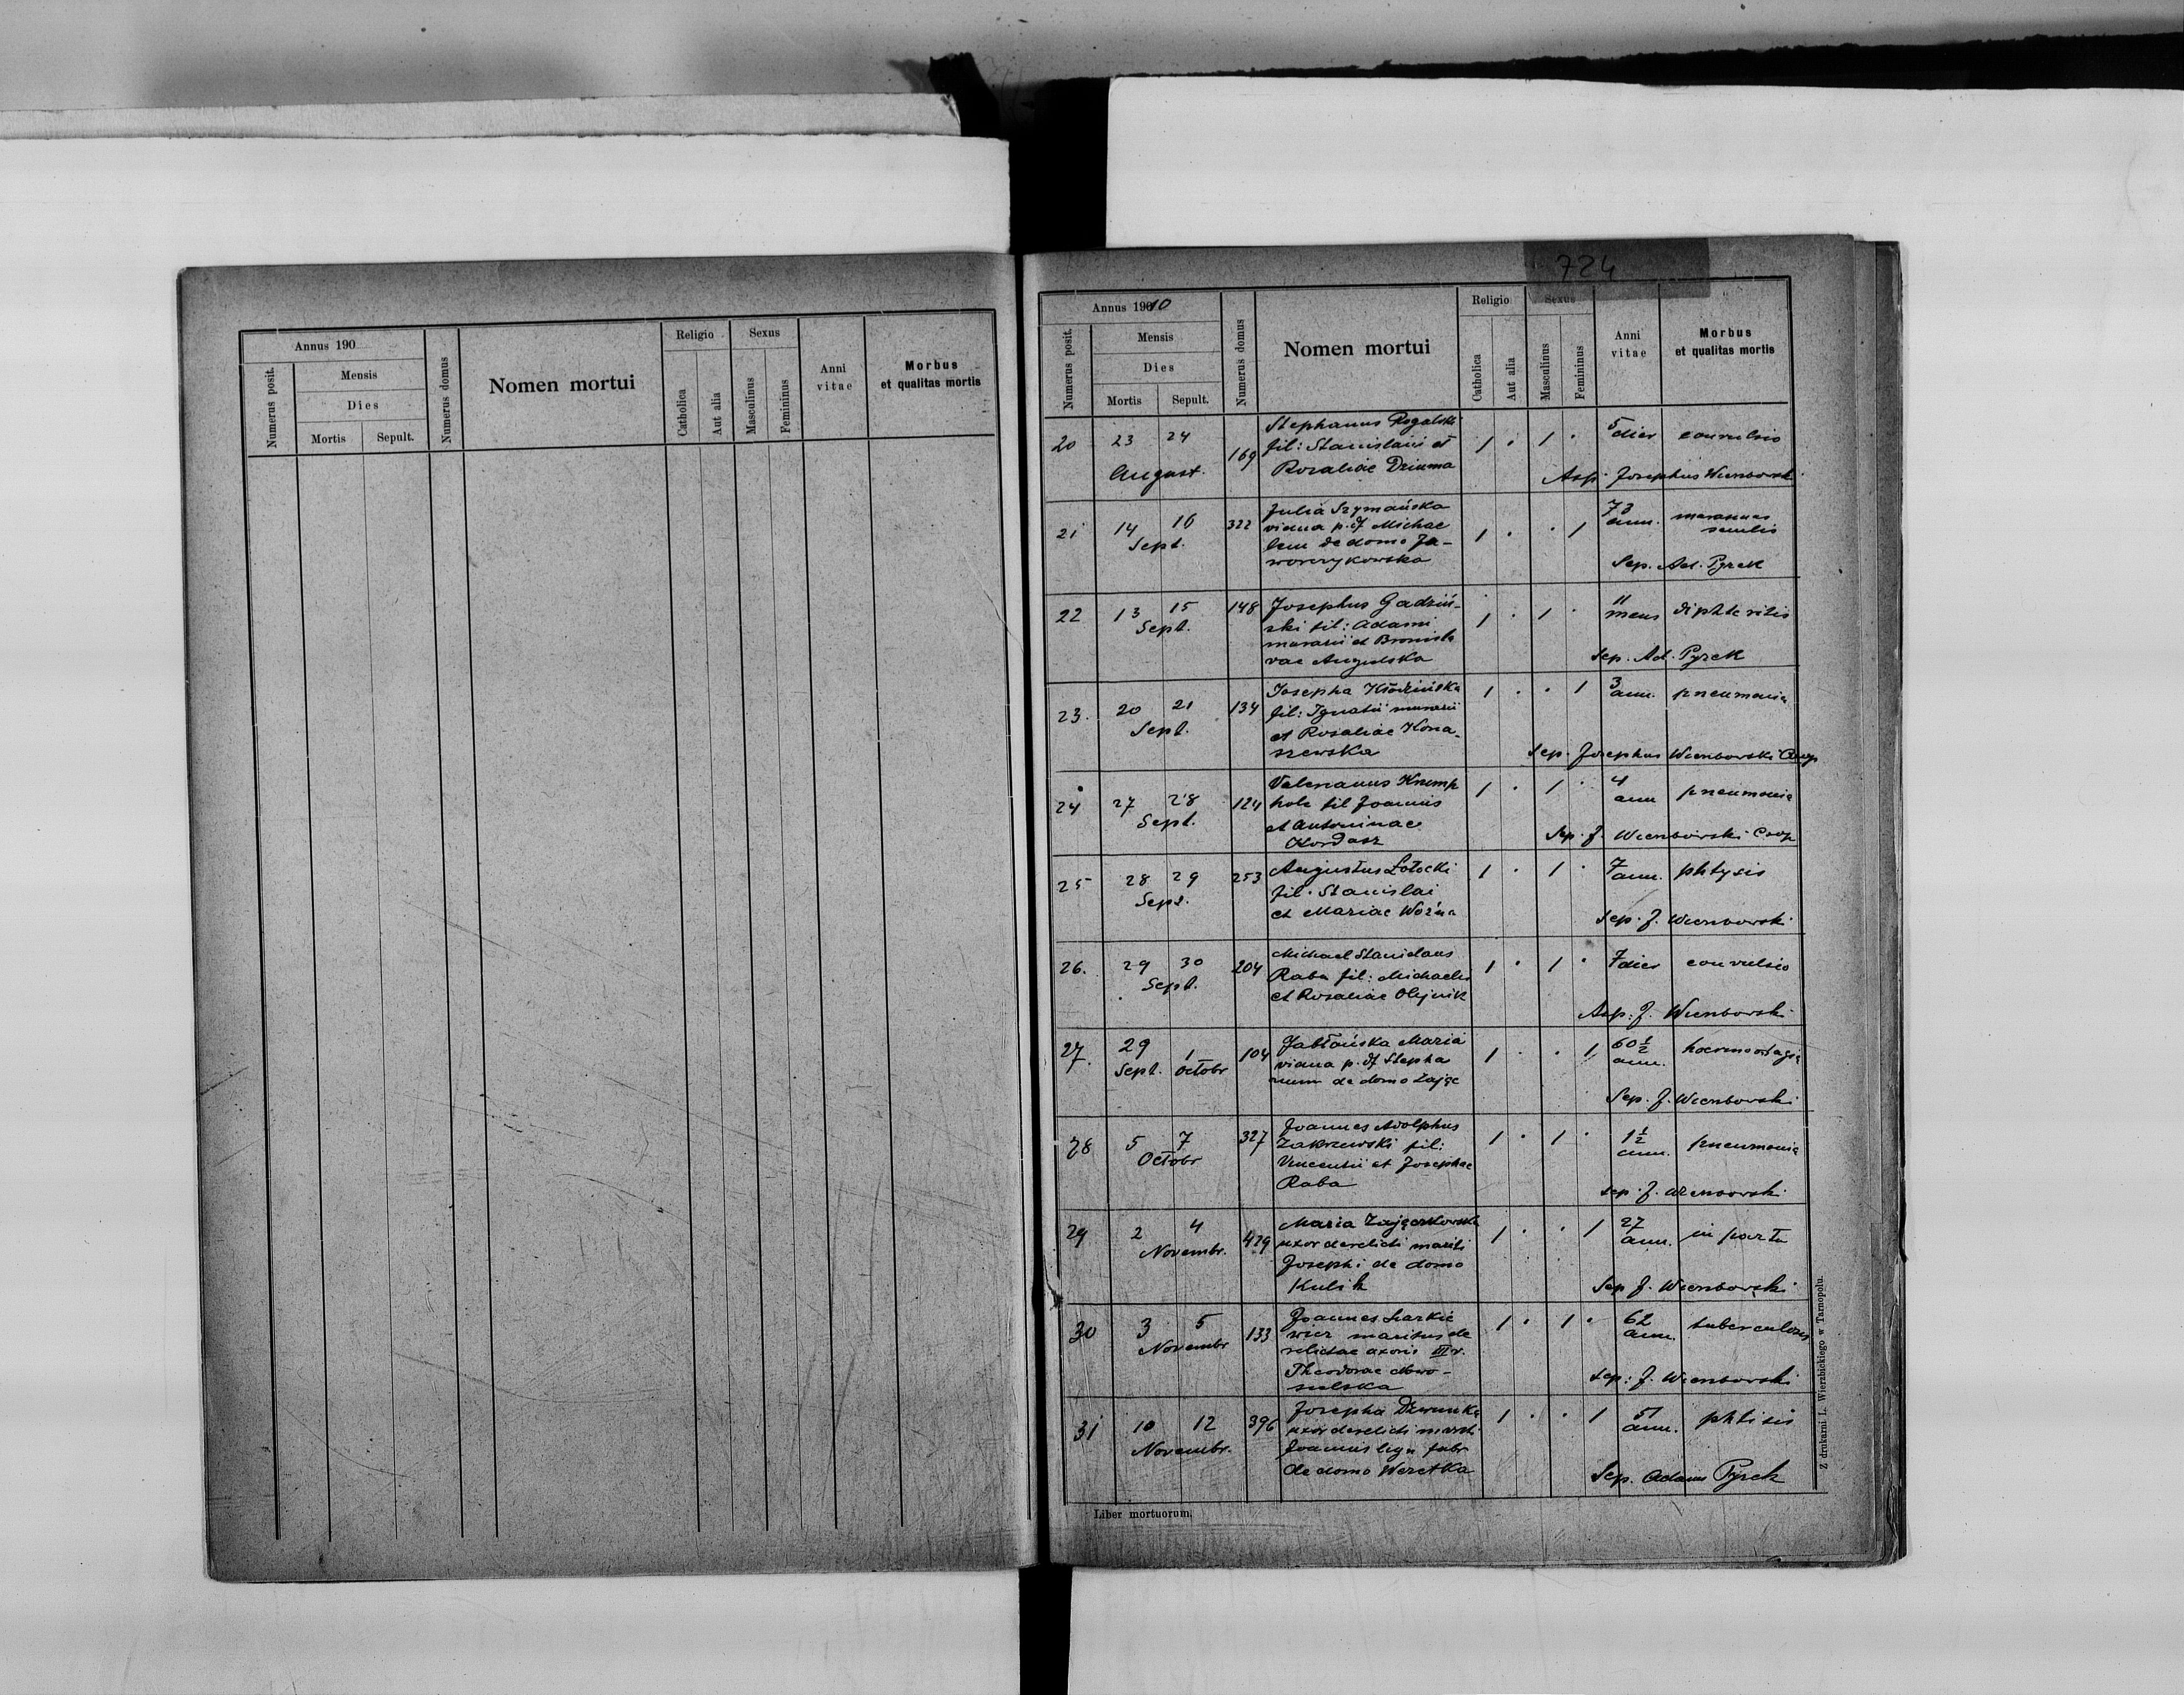 Annus 190
Numerus posit.
Mensis
Dies
Mortis
Sepult.
Numerus domus
Nomen mortui
Religio
Catholica
Aut alia
Sexus
Masculinus
Femininus
Anni
vitae
Morbus
et qualitas mortis
724
Annus 1910
Numerus posit.
Mensis
Dies
Mortis
Sepult.
Numerus domus
Nomen mortui
Religio
Catholica
Aut alia
Sexus
Masculinus
Femininus
Anni
vitae
Morbus
et qualitas mortis
20 23 24 August. 169
Stephanus Rogalski
fil: Stanislai et
Rozaliae Dziuma
1 . 1 . 5 dies convulsio
Asp: Josephus
21 14 16 Sept. 322
Julia Szymańska
vidua p. df Michae
lem de domo Ja-
worczykowska
1 . . 1 73 ann. marasmus
senilis
Sep. Ad. Pyrek
22 13 15 Sept. 148
Josephus Gadziń-
ski fil: Adami
murarii et Bronisla
vae
1 . 1 . 11 mens diphteritis
Sep. Ad. Pyrek
23. 20 21 Sept. 134
Josepha Kłodzińska
fil: Ignatii murarii
et Rosaliae Kona-
szewska
1 . . 1 3 ann. pneumonia
Sep. Josephus Coop
24 27 28 Sept. 124
Valerianus Knemp
hole fil Joannis
et Antoninae
Kordasz
1 . 1 . 4 ann pneumonia
Sep. J. Coop
25 28 29 Sept. 253
Augustus Łotocki
fil. Stanislai
et Mariae Woźna
1 . 1 . 7 ann. phtysis
Sep. J.
26. 29 30 Sept. 204
Michael Stanislaus
Raba fil: Michaelis
et Rosaliae Olejnik
1 . 1 . 7 dies convulsio
Asp: J.
27. 29 Sept. 1 Octobr 104
Jabłońska Maria
vidua p. df Stepha
num de domo Zając
1 . . 1 60 1/2 ann. haemorrhagia
Sep. J.
28 5 7 Octobr 327
Joannes Adolphus
Zakrzewski fil:
Vincentii et Josephae
Raba
1 . 1 . 1 1/2 ann. pneumonia
Sep. J.
29 2 4 Novembr. 429
Maria Zajączkowska
uxor derelicti mariti
Josephi de domo
Kulik
1 . . 1 27 ann. in partu
Sep J.
30 3 5 Novembr 133
Joannes Larkie
wicz maritus de
relictae uxoris III v.
Theodorae Nowo-
sielska
1 . 1 . 62 ann. tuberculosis
Sep: J.
31 10 12 Novembr. 396
Josepha
uxor derelicti mariti
Joannis lign fabr
de domo Weretka
1 . . 1 51 ann. phtisis
Sep. Adam Pyrek
Liber mortuorum.
Z drukarni L. Wierzbickiego w Tarnopolu.